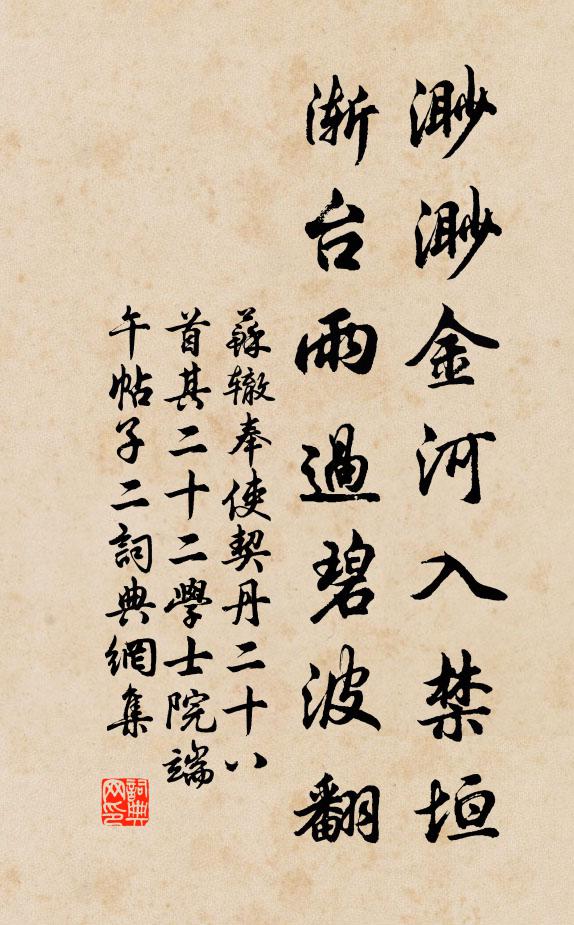 渺渺金河入禁垣
渐台雨過碧波翻
蘇辙奉使契丹二十八
首其二十二學士院端
午帖子二詞典網集
詞典网印